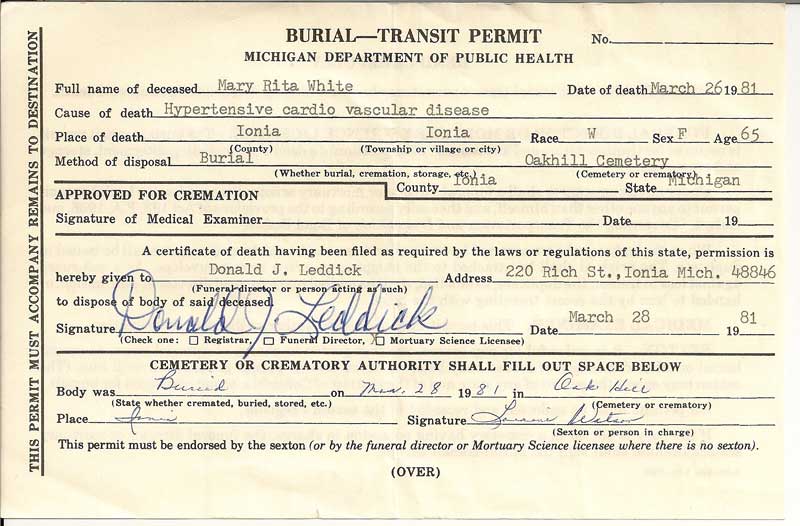 THIS PERMIT MUST ACCOMPANY REMAINS TO DESTINATION
BURIAL—TRANSIT PERMIT No.
MICHIGAN DEPARTMENT OF PUBLIC HEALTH
Full name of deceased Mary Rita White Date of death March 26 1981
Cause of death Hypertensive cardio vascular disease
Place of death Ionia Ionia Race W Sex F Age 65
(County) (Township or village or city)
Method of disposal Burial Oakhill Cemetery
(Whether burial, cremation, storage, etc.) (Cemetery or crematory)
County Ionia State Michigan
APPROVED FOR CREMATION
Signature of Medical Examiner Date 19
A certificate of death having been filed as required by the laws or regulations of this state, permission is
hereby given to Donald J. Leddick Address 220 Rich St., Ionia Mich. 48846
(Funeral director or person acting as such)
to dispose of body of said deceased.
Signature Donald J. Leddick Date March 28 19 81
(Check one: Registrar, Funeral Director, X Mortuary Science Licensee)
CEMETERY OR CREMATORY AUTHORITY SHALL FILL OUT SPACE BELOW
Body was Buried on Mar. 28 1981 in Oak Hill
(State whether cremated, buried, stored, etc.) (Cemetery or crematory)
Place Ionia Signature Watson
(Sexton or person in charge)
This permit must be endorsed by the sexton (or by the funeral director or Mortuary Science licensee where there is no sexton).
(OVER)